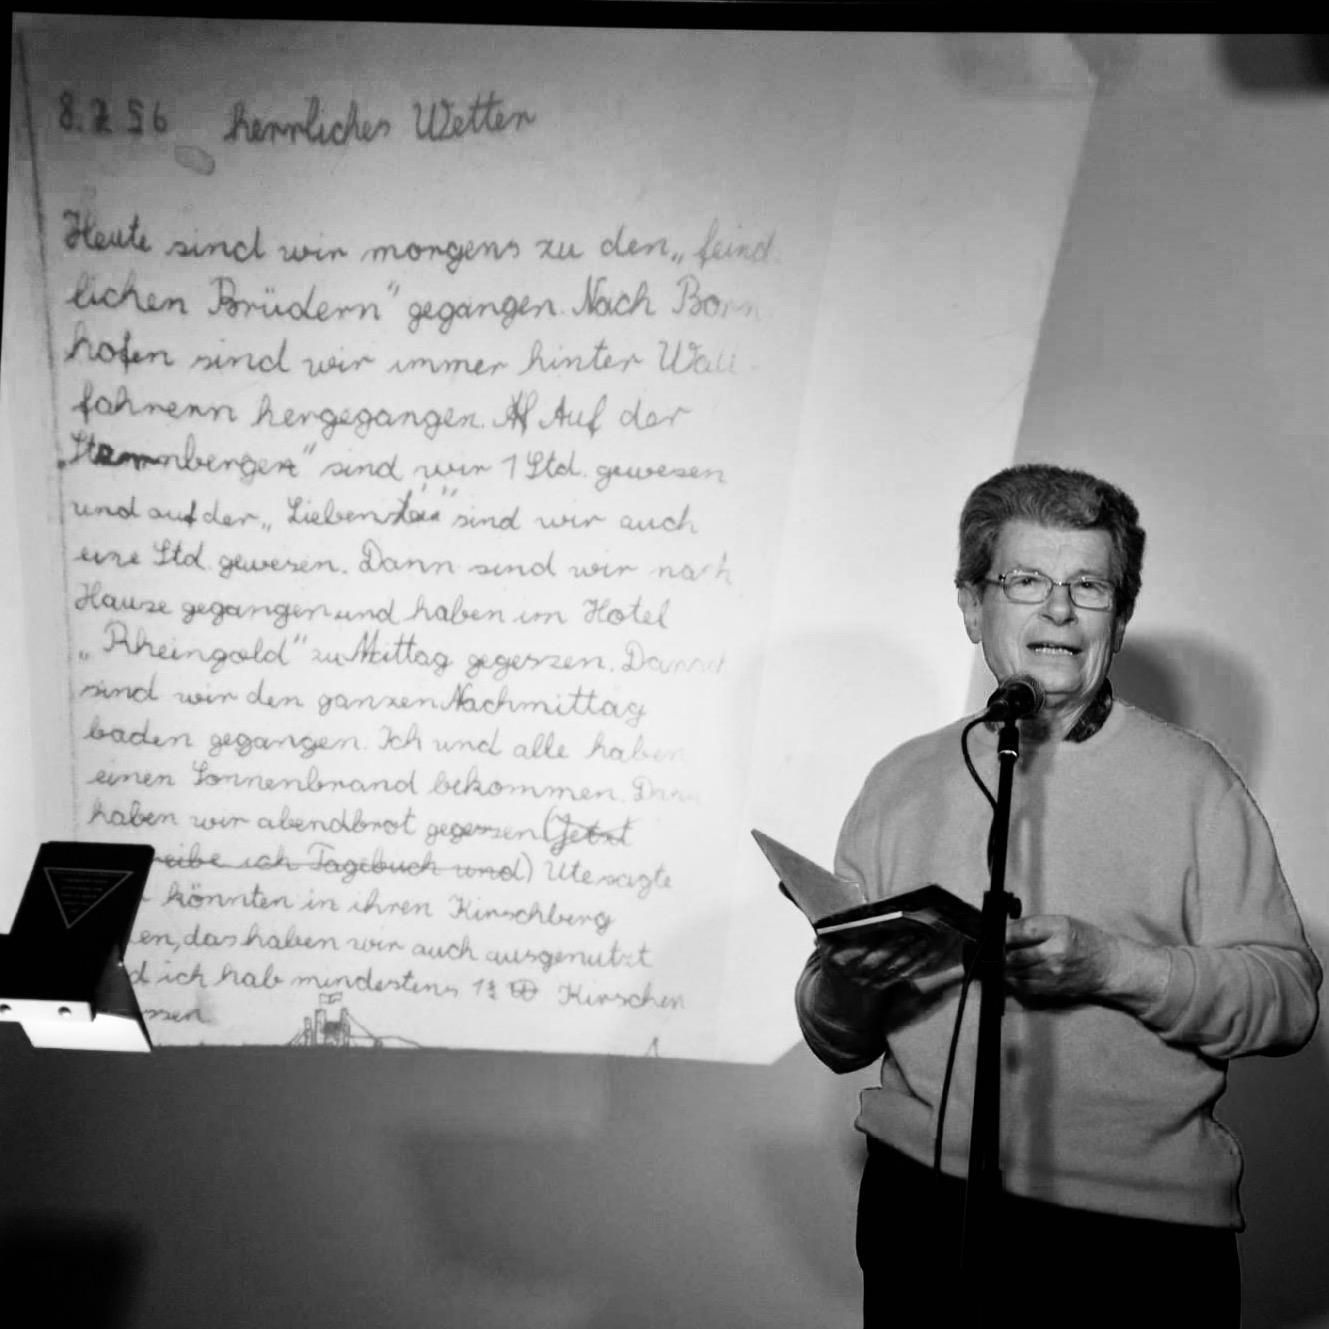 8.7.56 herrliches Wetter
Heute sind wir morgens zu den „feind
lichen Brüdern" gegangen. Nach Born
hofen sind wir immer hinter Wall
fahrern hergegangen. Auf der
nbergen" sind wir 1 Std. gewesen
und auf der „Liebenstein" sind wir auch
eine Std. gewesen. Dann sind wir nach
Hause gegangen und haben im Hotel
„Rheingold" zu Mittag gegessen. Dann
sind wir den ganzen Nachmittag
baden gegangen. Ich und alle haben
einen Sonnenbrand bekommen. Dann
haben wir abendbrot gegessen (Jetzt
reibe ich Tagebuch und) Ute sagte
könnten in ihren Kirschberg
en, das haben wir auch ausgenutzt
d ich hab mindestens Kirschen
ssen